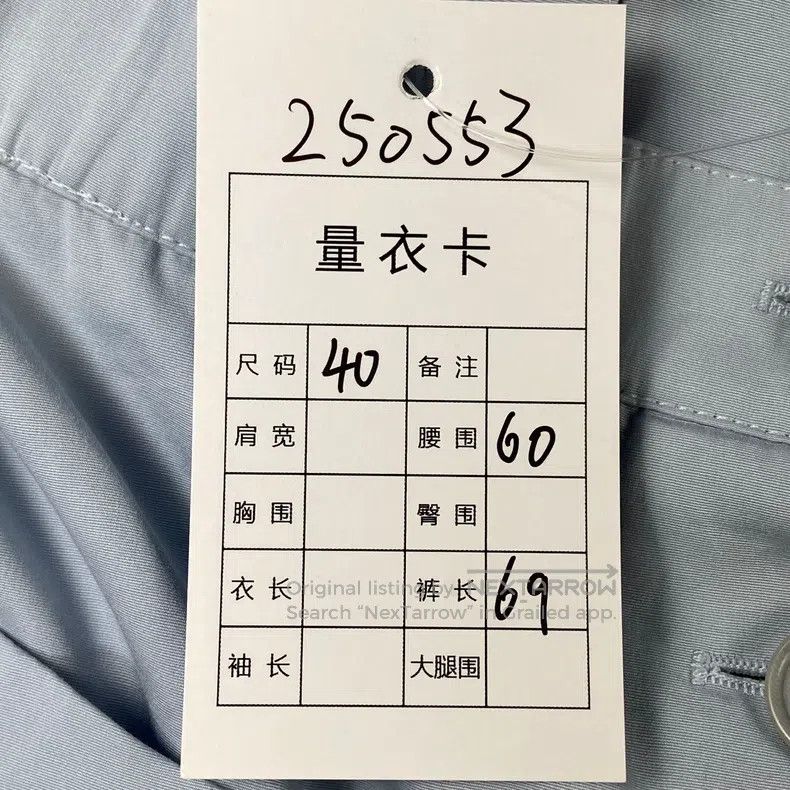 250553
量衣卡
尺码 40 备注
肩宽 腰围 60
胸围 臀围
衣长 裤长 69
袖长 大腿围
Original listing by NEXTARROW
Search “NexTarrow” in Grailed app.